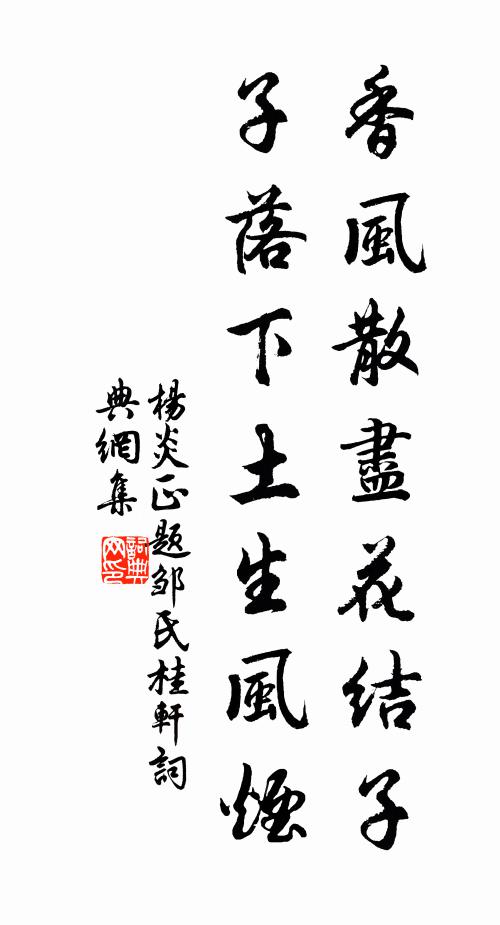 香風散盡花結子
子落下土生風煙
楊炎正題邹氏桂軒詞
典網集
詞典网印